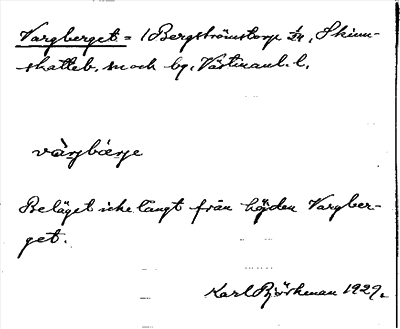 Vargberget = /Bergströmstorp 1/24, Skinn-
skatteb. sn och bg, Västmanl. l.
vàrjbærje
Beläget icke långt från höjden Vargber-
get.
Karl Björkman 1929.